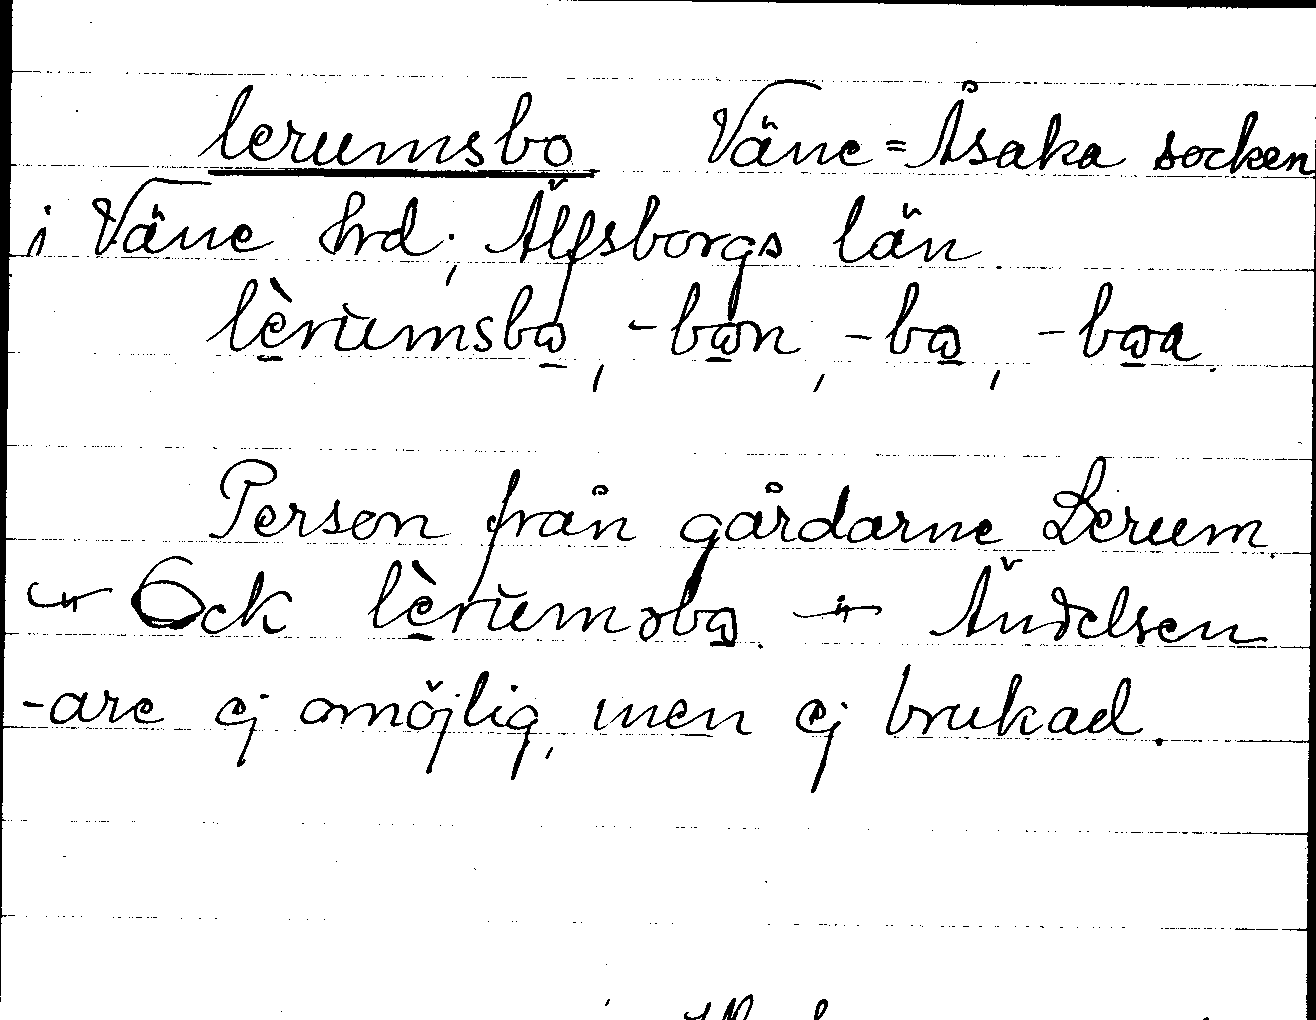 lerumsbo Väne=Åsaka socken
i Väne hrd; Älfsborgs län.
lè̠rùmsbɷ̠, -bɷ̠n, -bɷ̠, -bɷ̠a.
Person från gårdarne Lerum.
Ock lè̠rùmsbɷ̠. Ändelsen
-are ej omöjlig, men ej brukad.